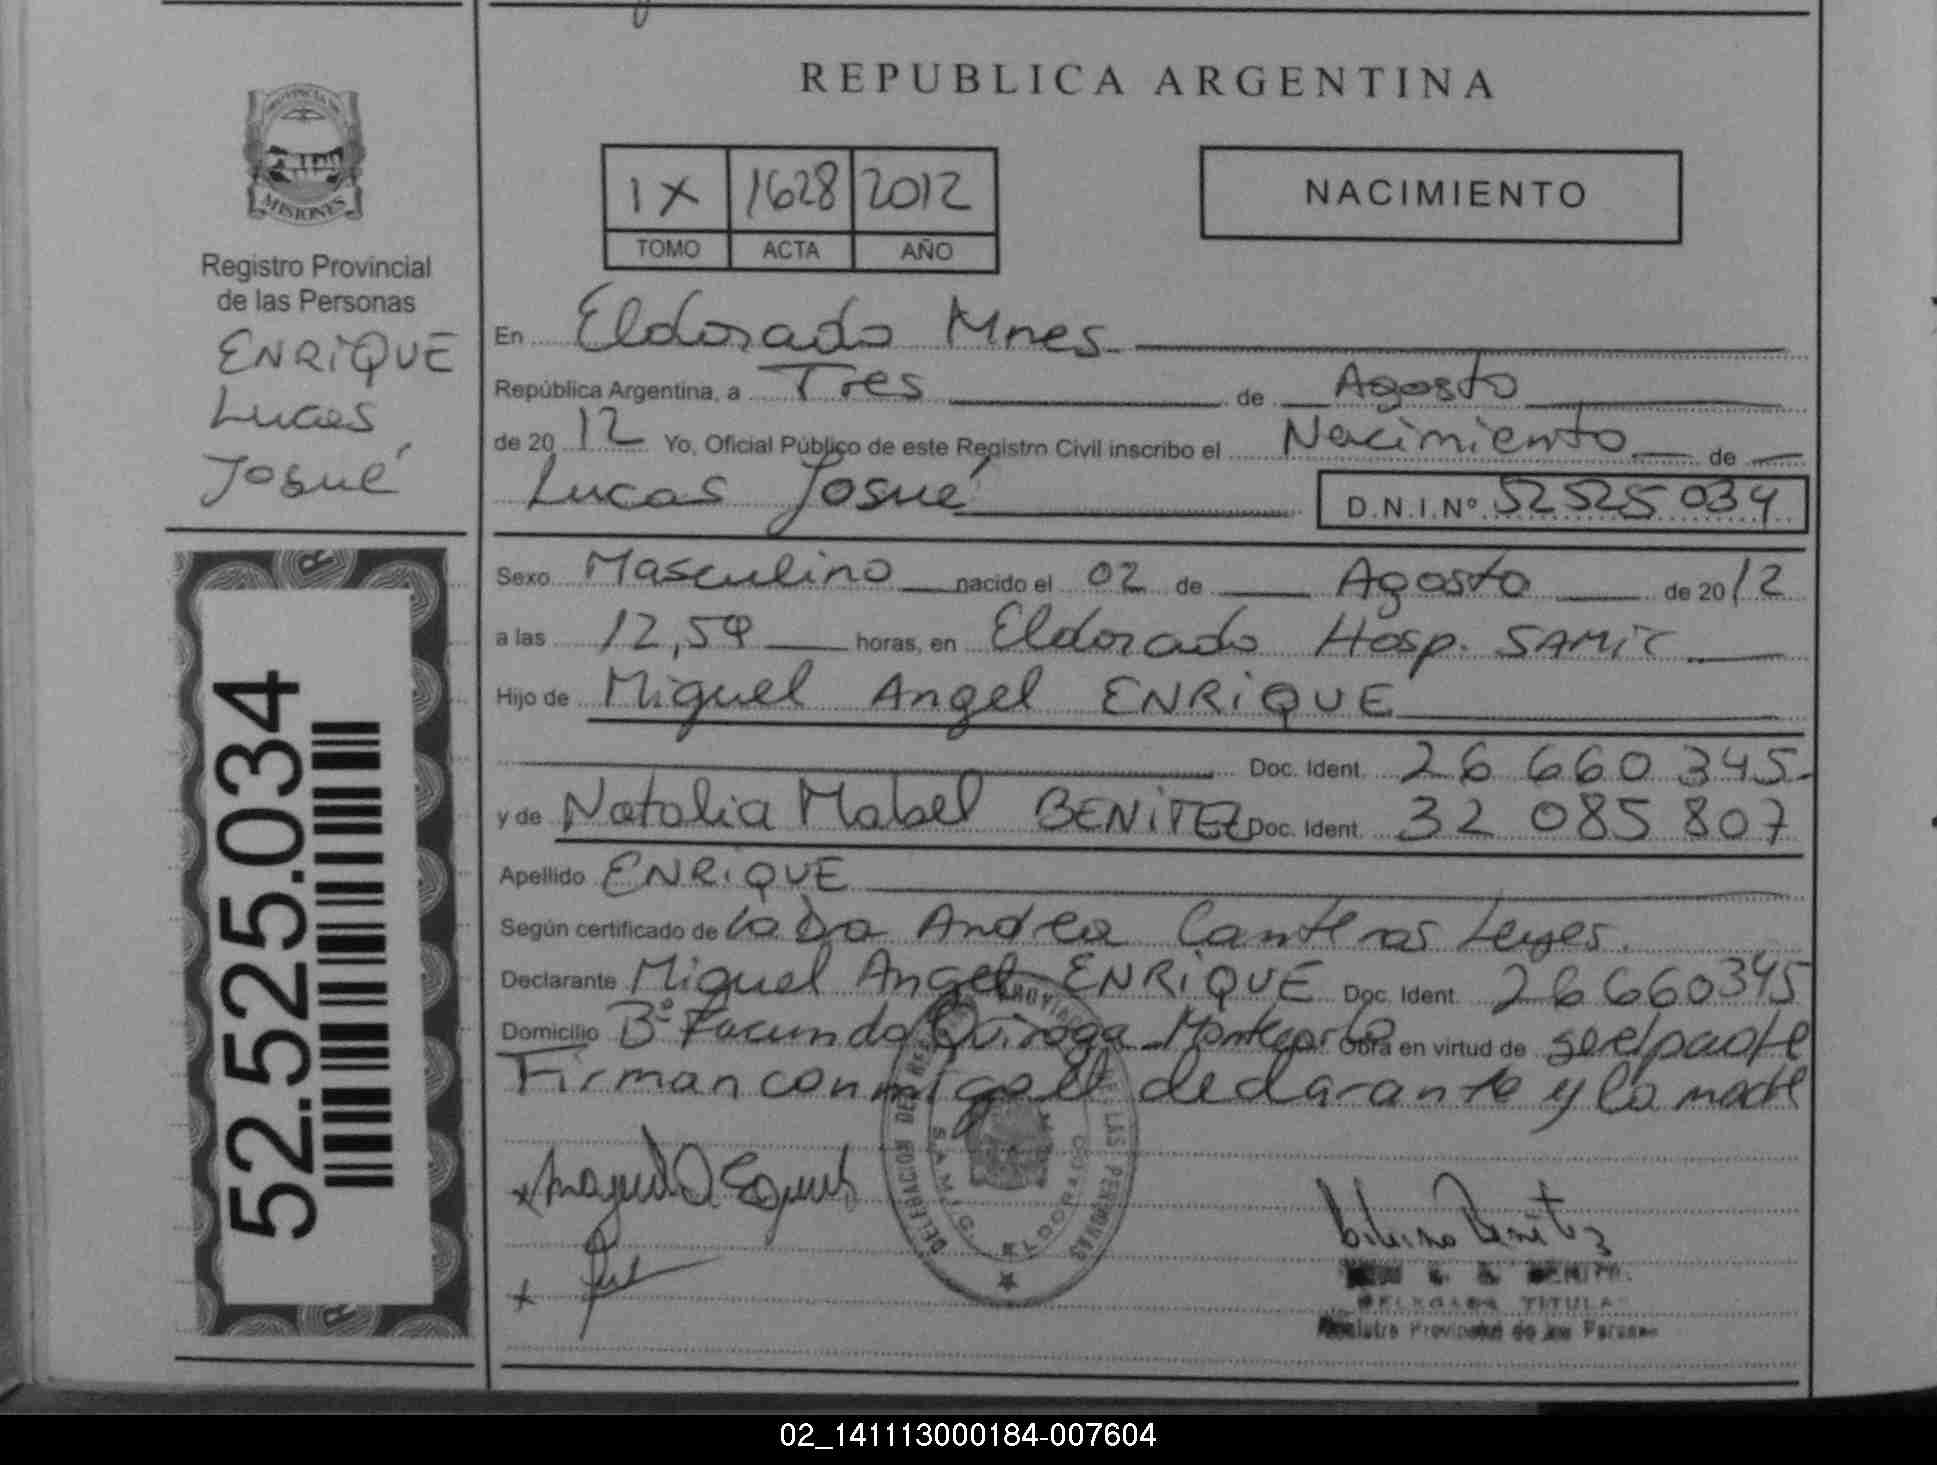 PROVINCIA DE
MISIONES
Registro Provincial
de las Personas
ENRIQUE
Lucas
Josué
52.525.034
REPUBLICA ARGENTINA
IX 1628 2012
TOMO ACTA AÑO
NACIMIENTO
En Eldorado Mnes
República Argentina, a Tres de Agosto
de 2012 Yo, Oficial Público de este Registro Civil inscribo el Nacimiento de
Lucas Josué D.N.I.Nº 52 525 034
Sexo Masculino nacido el 02 de Agosto de 2012
a las 12,59 horas, en Eldorado Hosp. SAMIC
Hijo de Miguel Angel ENRIQUE
Doc. Ident. 26 660 345
y de Natalia Mabel BENITEZ Doc. Ident. 32 085 807
Apellido ENRIQUE
Según certificado de la Dra Andrea Canteros Leyes.
Declarante Miguel Angel ENRIQUE Doc. Ident. 26 660345
Domicilio Bº Facundo Quiroga Montecarlo Obra en virtud de ser el padre
Firman conmigo el declarante y la madre
DELEGACION DEL REGISTRO PROVINCIAL DE LAS PERSONAS
S.A.M.I.C. ELDORADO
BENITEZ
DELEGADA TITULAR
Registro Provincial de las Personas
02_141113000184-007604